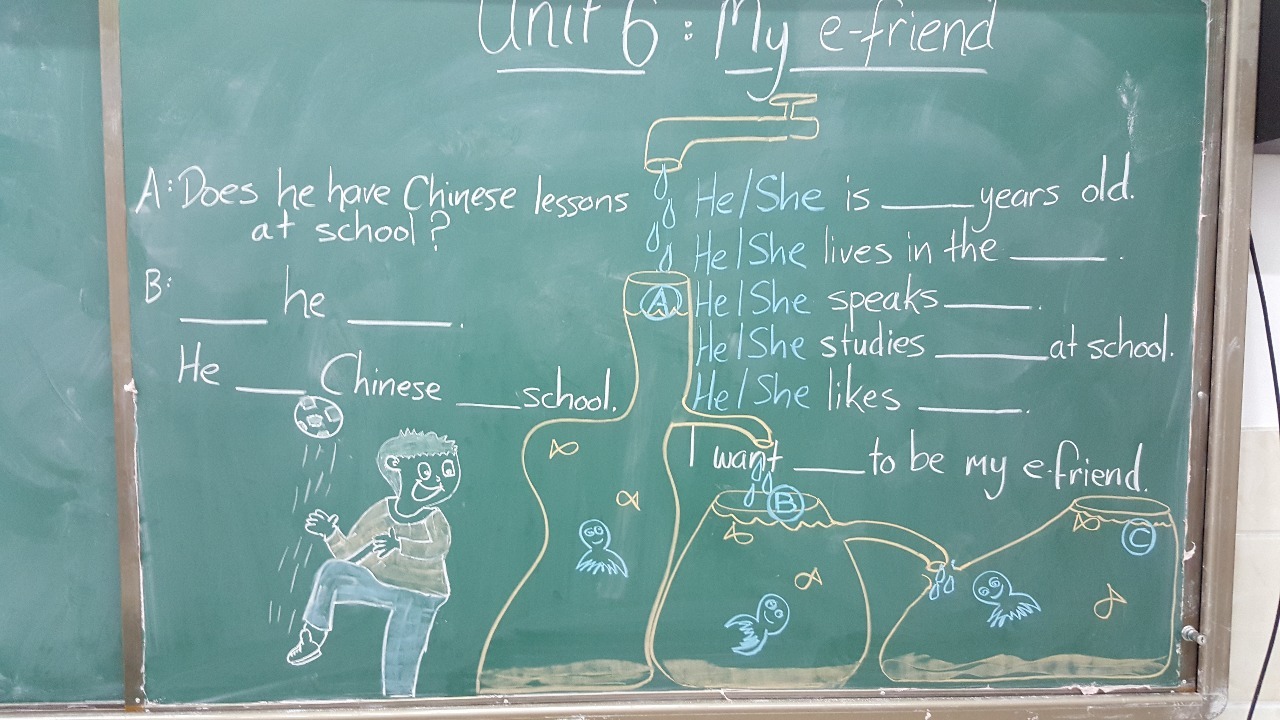 Unit 6: My e-friend
A: Does he have Chinese lessons
at school?
B:
____ he ____.
He ____ Chinese ____ school.
He/She is ____ years old.
He/She lives in the ____.
He/She speaks ____.
He/She studies ____ at school.
He/She likes ____.
I want ____ to be my e-friend.
A
B
C